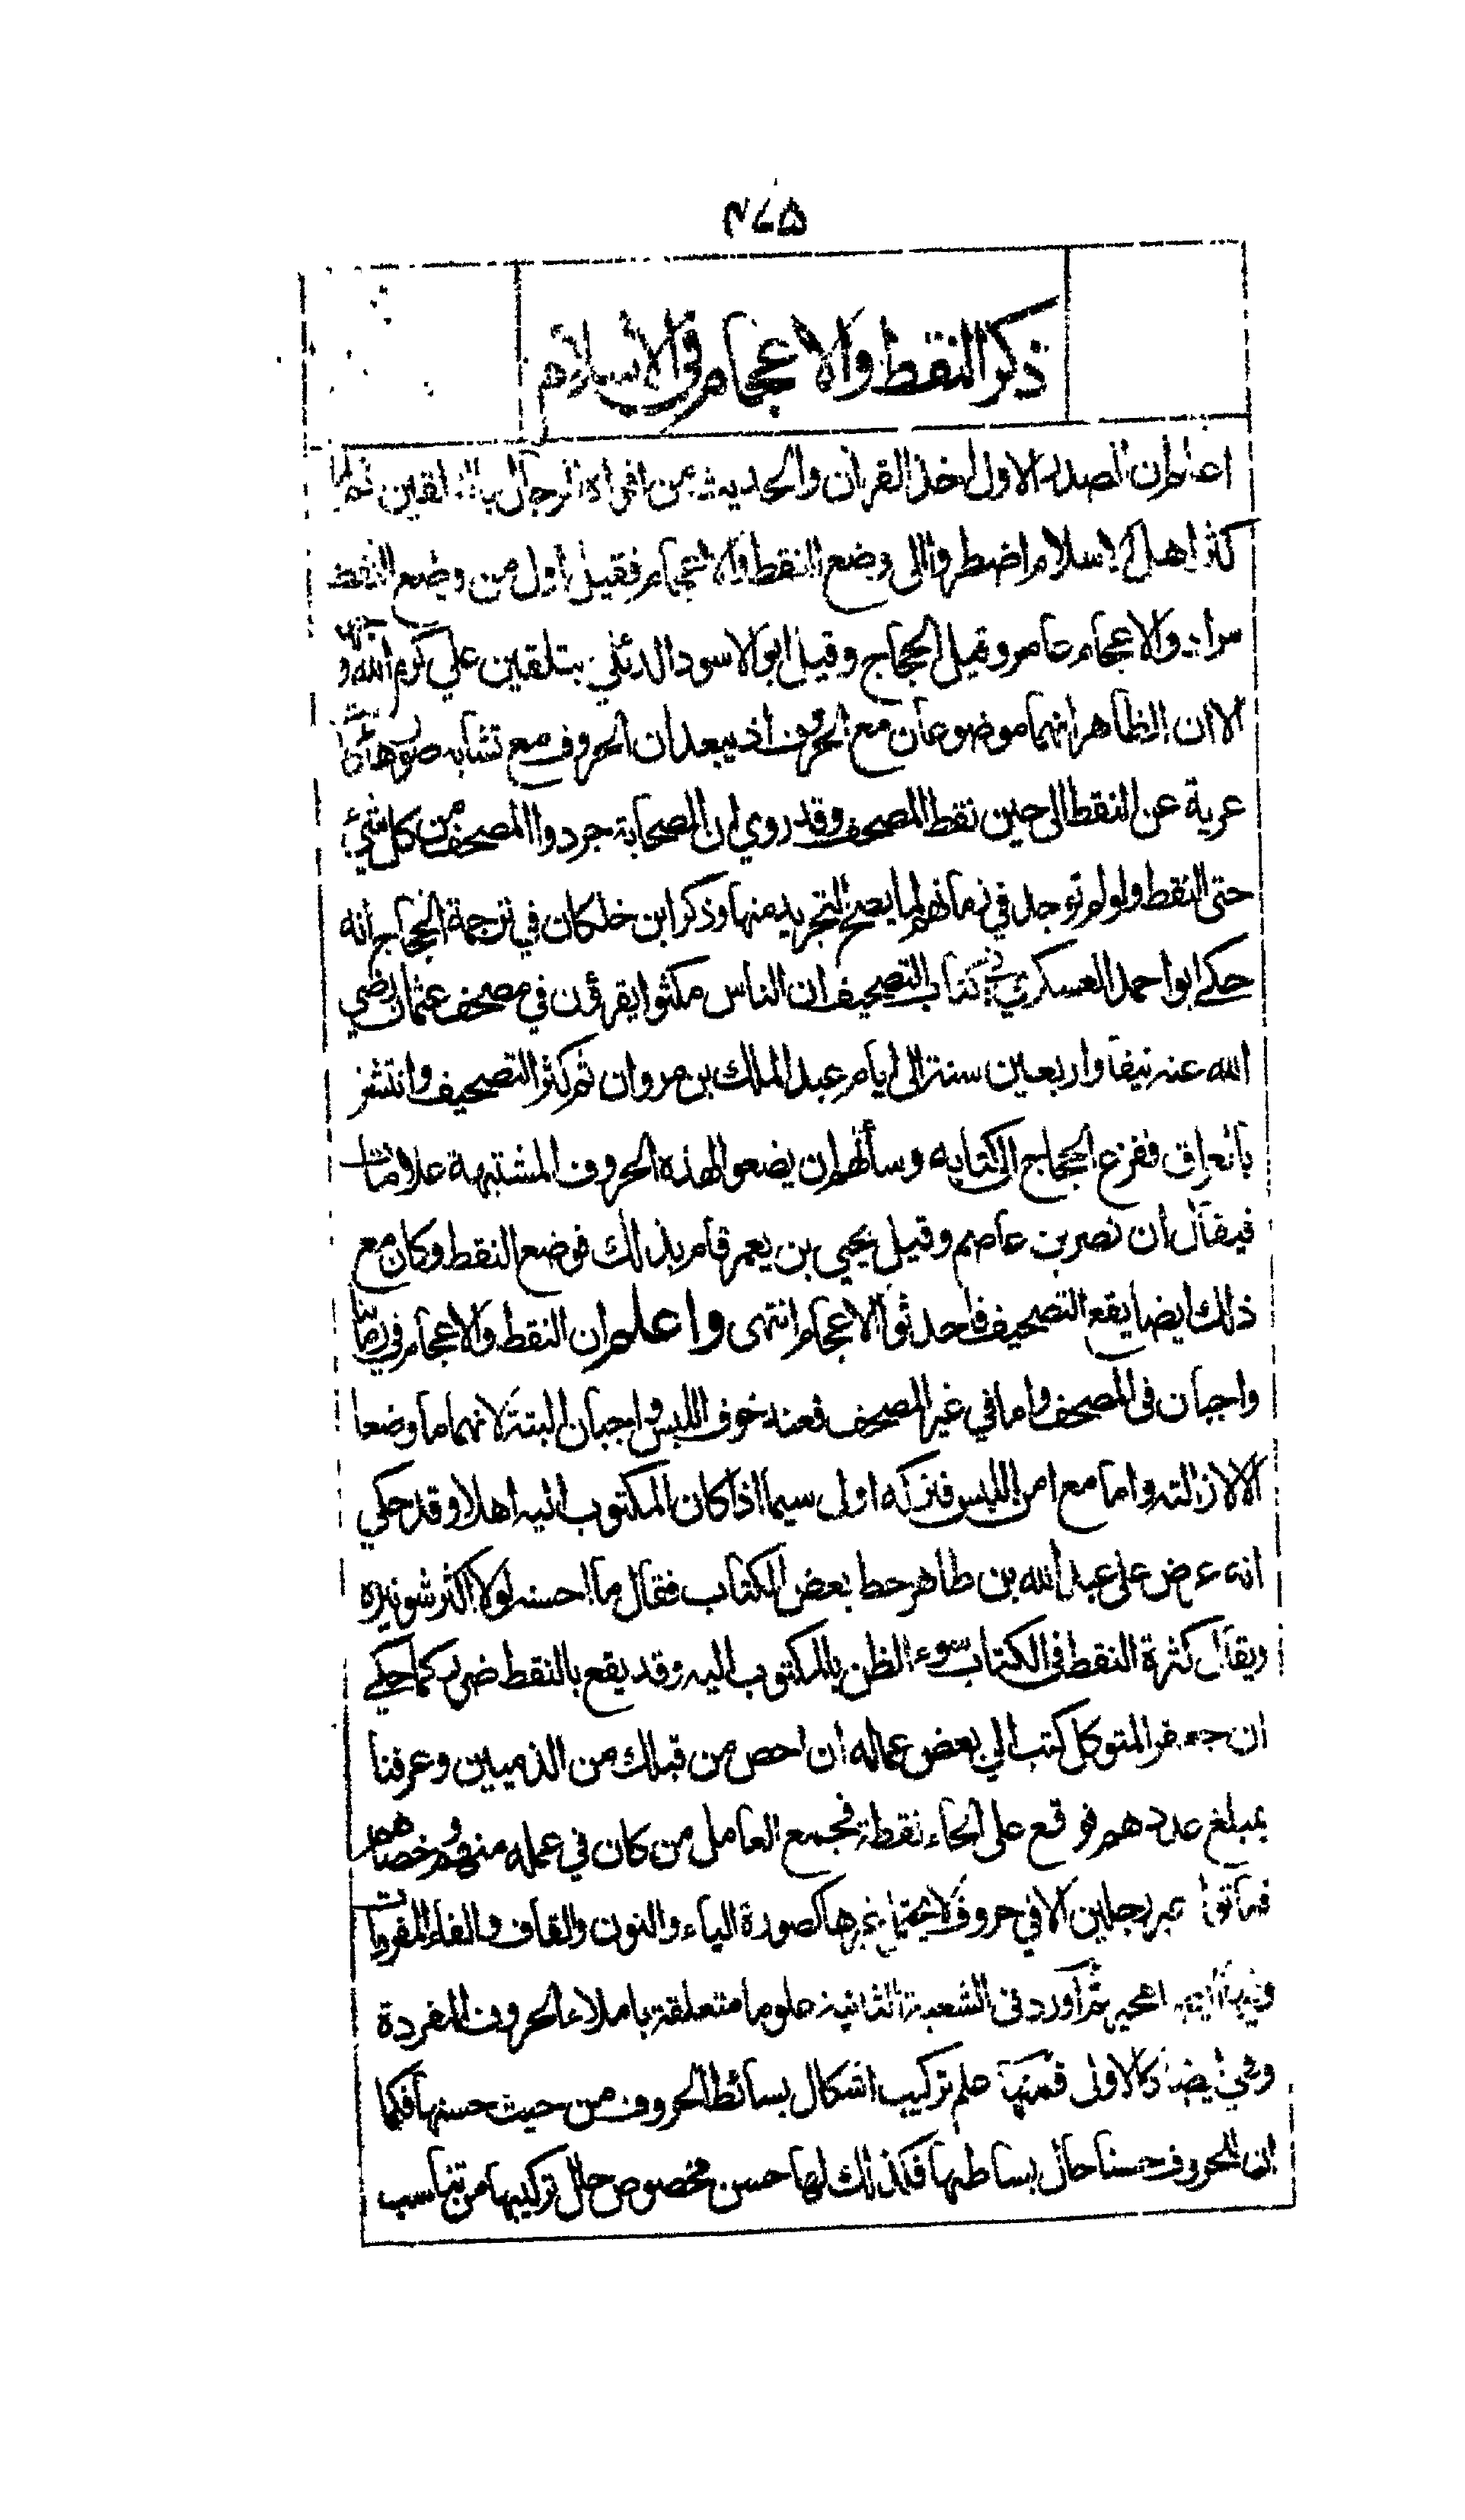 ٤٦٥
ذكر النقط والاعجام في الاسلام
اعلم ان الصدر الاول اخذ القران والحديث من افواه الرجال بالتلقين ثم لما
كثر اهل الاسلام اضطروا الى وضع النقط والاعجام فقيل اول من وضع النقط
مراد والاعجام عامر وقيل الحجاج وقيل ابو الاسود الدئلي بتلقين علي كرم الله وجهه
الا ان الظاهر انهما موضوعان مع الحروف اذ يبعد ان الحروف مع تشابه صورها كانت
عرية عن النقط الى حين نقط المصحف وقد روي ان الصحابة جردوا المصحف من كل شيئ
حتى النقط ولو لم توجد في زمانهم لما يصح التجريد منها وذكر ابن خلكان في ترجمة الحجاج انه
حكے ابو احمد العسكري في كتاب التصحيف ان الناس مكثوا يقرؤن في مصحف عثمان رضي
الله عنه نيفا واربعين سنة الى ايام عبد الملك بن مروان ثم كثر التصحيف وانتشر
بالعراق ففزع الحجاج الى كتابه وسألهم ان يضعوا لهذه الحروف المشتبهة علامات
فيقال ان نصر بن عاصم وقيل يحيى بن يعمر قام بذلك فوضع النقط وكان مع
ذلك ايضا يقع التصحيف فاحدثوا الاعجام انتهى واعلم ان النقط والاعجام في زماننا
واجبان في المصحف واما في غير المصحف فعند خوف اللبس واجبان البتة لانهما ما وضعا
الا لازالته واما مع امن اللبس فتركه اولى سيما اذا كان المكتوب اليه اهلا وقد حكي
انه عرض على عبد الله بن طاهر خط بعض الكتاب فقال ما احسنه لولا اكثر شونيزه
ويقال كثرة النقط في الكتاب سوء الظن بالمكتوب اليه وقد يقع بالنقط ضرر كما حكے
ان جعفر المتوكل كتب الي بعض عماله ان احص من قبلك من الذميين وعرفنا
بمبلغ عددهم فوقع على الحاء نقطة فجمع العامل من كان في عمله منهم وخصاهم
فماتوا غير رجلين الا في حروف لا يحتمل غيرها كصورة الياء والنون والقاف والفاء المفردات
وفيها ايضا مخير ثم أورد في الشعبة الثانية علوما متعلقة باملاء الحروف المفردة
وهي ايضا كالاولى فمنها علم تركيب اشكال بسائط الحروف من حيث حسنها فكما
ان للحروف حسنا حال بساطتها فكذلك لها حسن مخصوص حال تركيبها من تناسب